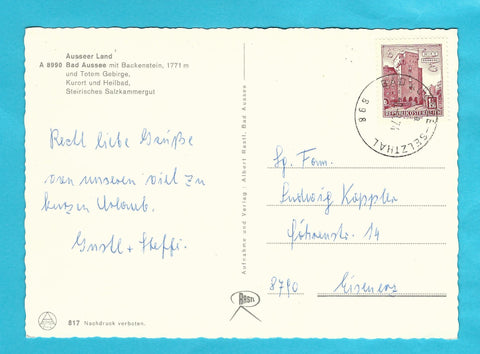 Ausseer Land
A 8990 Bad Aussee mit Backenstein, 1771 m
und Totem Gebirge,
Kurort und Heilbad,
Steirisches Salzkammergut
Recht liebe Grüße
von unseren viel zu
kurzen Urlaub.
Gustl + Steffi.
817 Nachdruck verboten.
Aufnahme und Verlag: Albert Rastl, Bad Aussee
REPUBLIK ÖSTERREICH
BAD
SELZTHAL
898
Sg. Fam.
Ludwig Kappler
14
8790 Eisenerz
Rastl